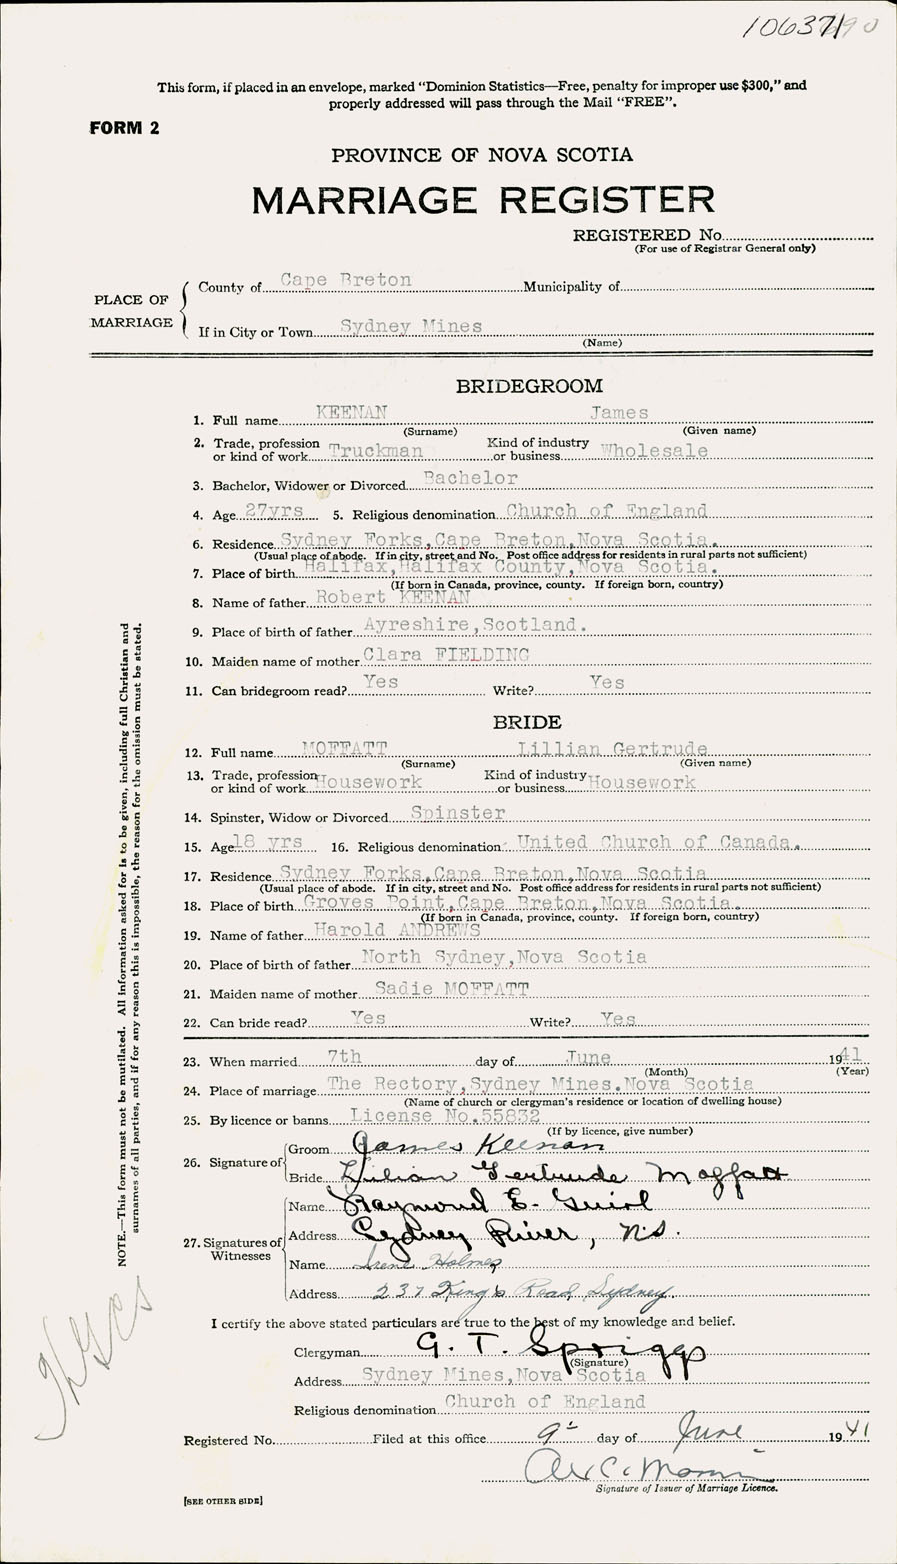 10637
This form, if placed in an envelope, marked “Dominion Statistics—Free, penalty for improper use $300,” and
properly addressed will pass through the Mail “FREE”.
FORM 2
PROVINCE OF NOVA SCOTIA
MARRIAGE REGISTER
REGISTERED No.
(For use of Registrar General only)
PLACE OF MARRIAGE
County of Cape Breton Municipality of
If in City or Town Sydney Mines
(Name)
BRIDEGROOM
1. Full name KEENAN James
(Surname) (Given name)
2. Trade, profession or kind of work Truckman Kind of industry or business Wholesale
3. Bachelor, Widower or Divorced Bachelor
4. Age 27yrs 5. Religious denomination Church of England
6. Residence Sydney Forks,Cape Breton,Nova Scotia.
(Usual place of abode. If in city, street and No. Post office address for residents in rural parts not sufficient)
7. Place of birth Halifax,Halifax County,Nova Scotia.
(If born in Canada, province, county. If foreign born, country)
8. Name of father Robert KEENAN
9. Place of birth of father Ayreshire,Scotland.
10. Maiden name of mother Clara FIELDING
11. Can bridegroom read? Yes Write? Yes
BRIDE
12. Full name MOFFATT Lillian Gertrude
(Surname) (Given name)
13. Trade, profession or kind of work Housework Kind of industry or business Housework
14. Spinster, Widow or Divorced Spinster
15. Age 18 yrs 16. Religious denomination United Church of Canada.
17. Residence Sydney Forks,Cape Breton,Nova Scotia
(Usual place of abode. If in city, street and No. Post office address for residents in rural parts not sufficient)
18. Place of birth Groves Point,Cape Breton,Nova Scotia.
(If born in Canada, province, county. If foreign born, country)
19. Name of father Harold ANDREWS
20. Place of birth of father North Sydney,Nova Scotia
21. Maiden name of mother Sadie MOFFATT
22. Can bride read? Yes Write? Yes
23. When married 7th day of June 1941
(Month) (Year)
24. Place of marriage The Rectory,Sydney Mines.Nova Scotia
(Name of church or clergyman's residence or location of dwelling house)
25. By licence or banns License No.55832
(If by licence, give number)
26. Signature of
Groom James Keenan
Bride Lilian Gertrude Moffatt
27. Signatures of Witnesses
Name Raymond E.
Address Sydney River, N.S.
Name Irene Holmes
Address 237 King's Road, Sydney.
I certify the above stated particulars are true to the best of my knowledge and belief.
Clergyman G. T. Spriggs
(Signature)
Address Sydney Mines,Nova Scotia
Religious denomination Church of England
Registered No. Filed at this office 9 day of June 1941
Signature of Issuer of Marriage Licence.
[SEE OTHER SIDE]
NOTE.—This form must not be mutilated. All information asked for is to be given, including full Christian and
surnames of all parties, and if for any reason this is impossible, the reason for the omission must be stated.